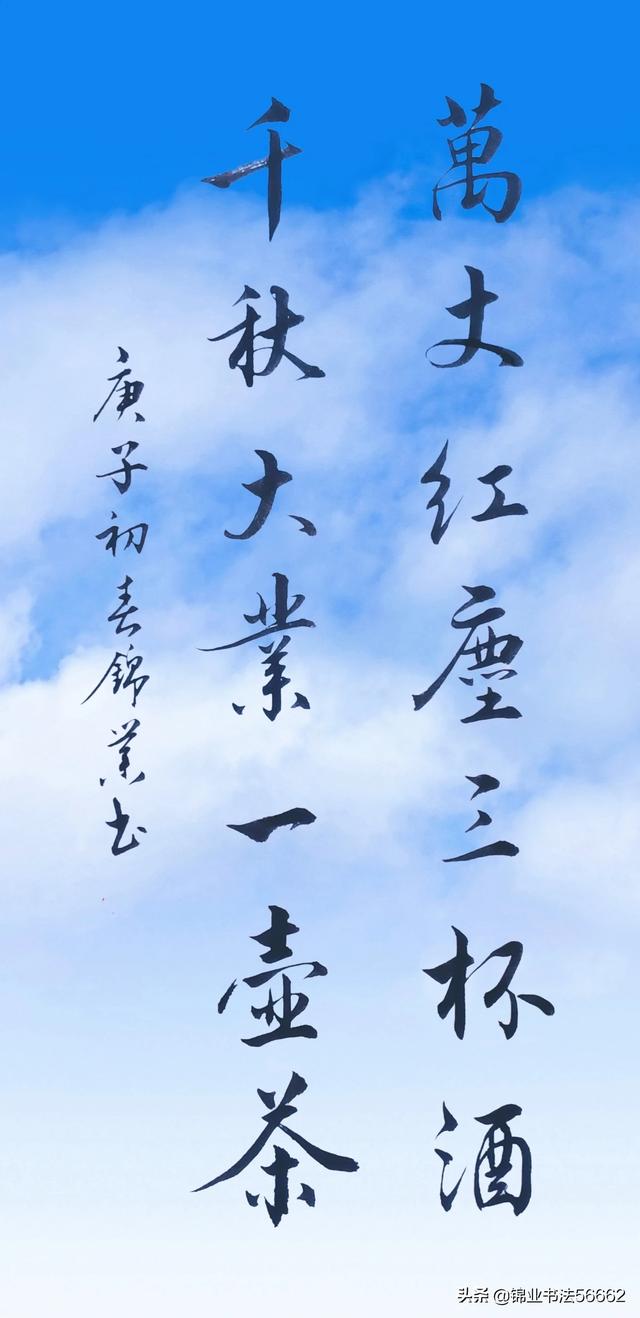 萬丈红塵三杯酒
千秋大業一壺茶
庚子初春錦業书
头条 @锦业书法56662